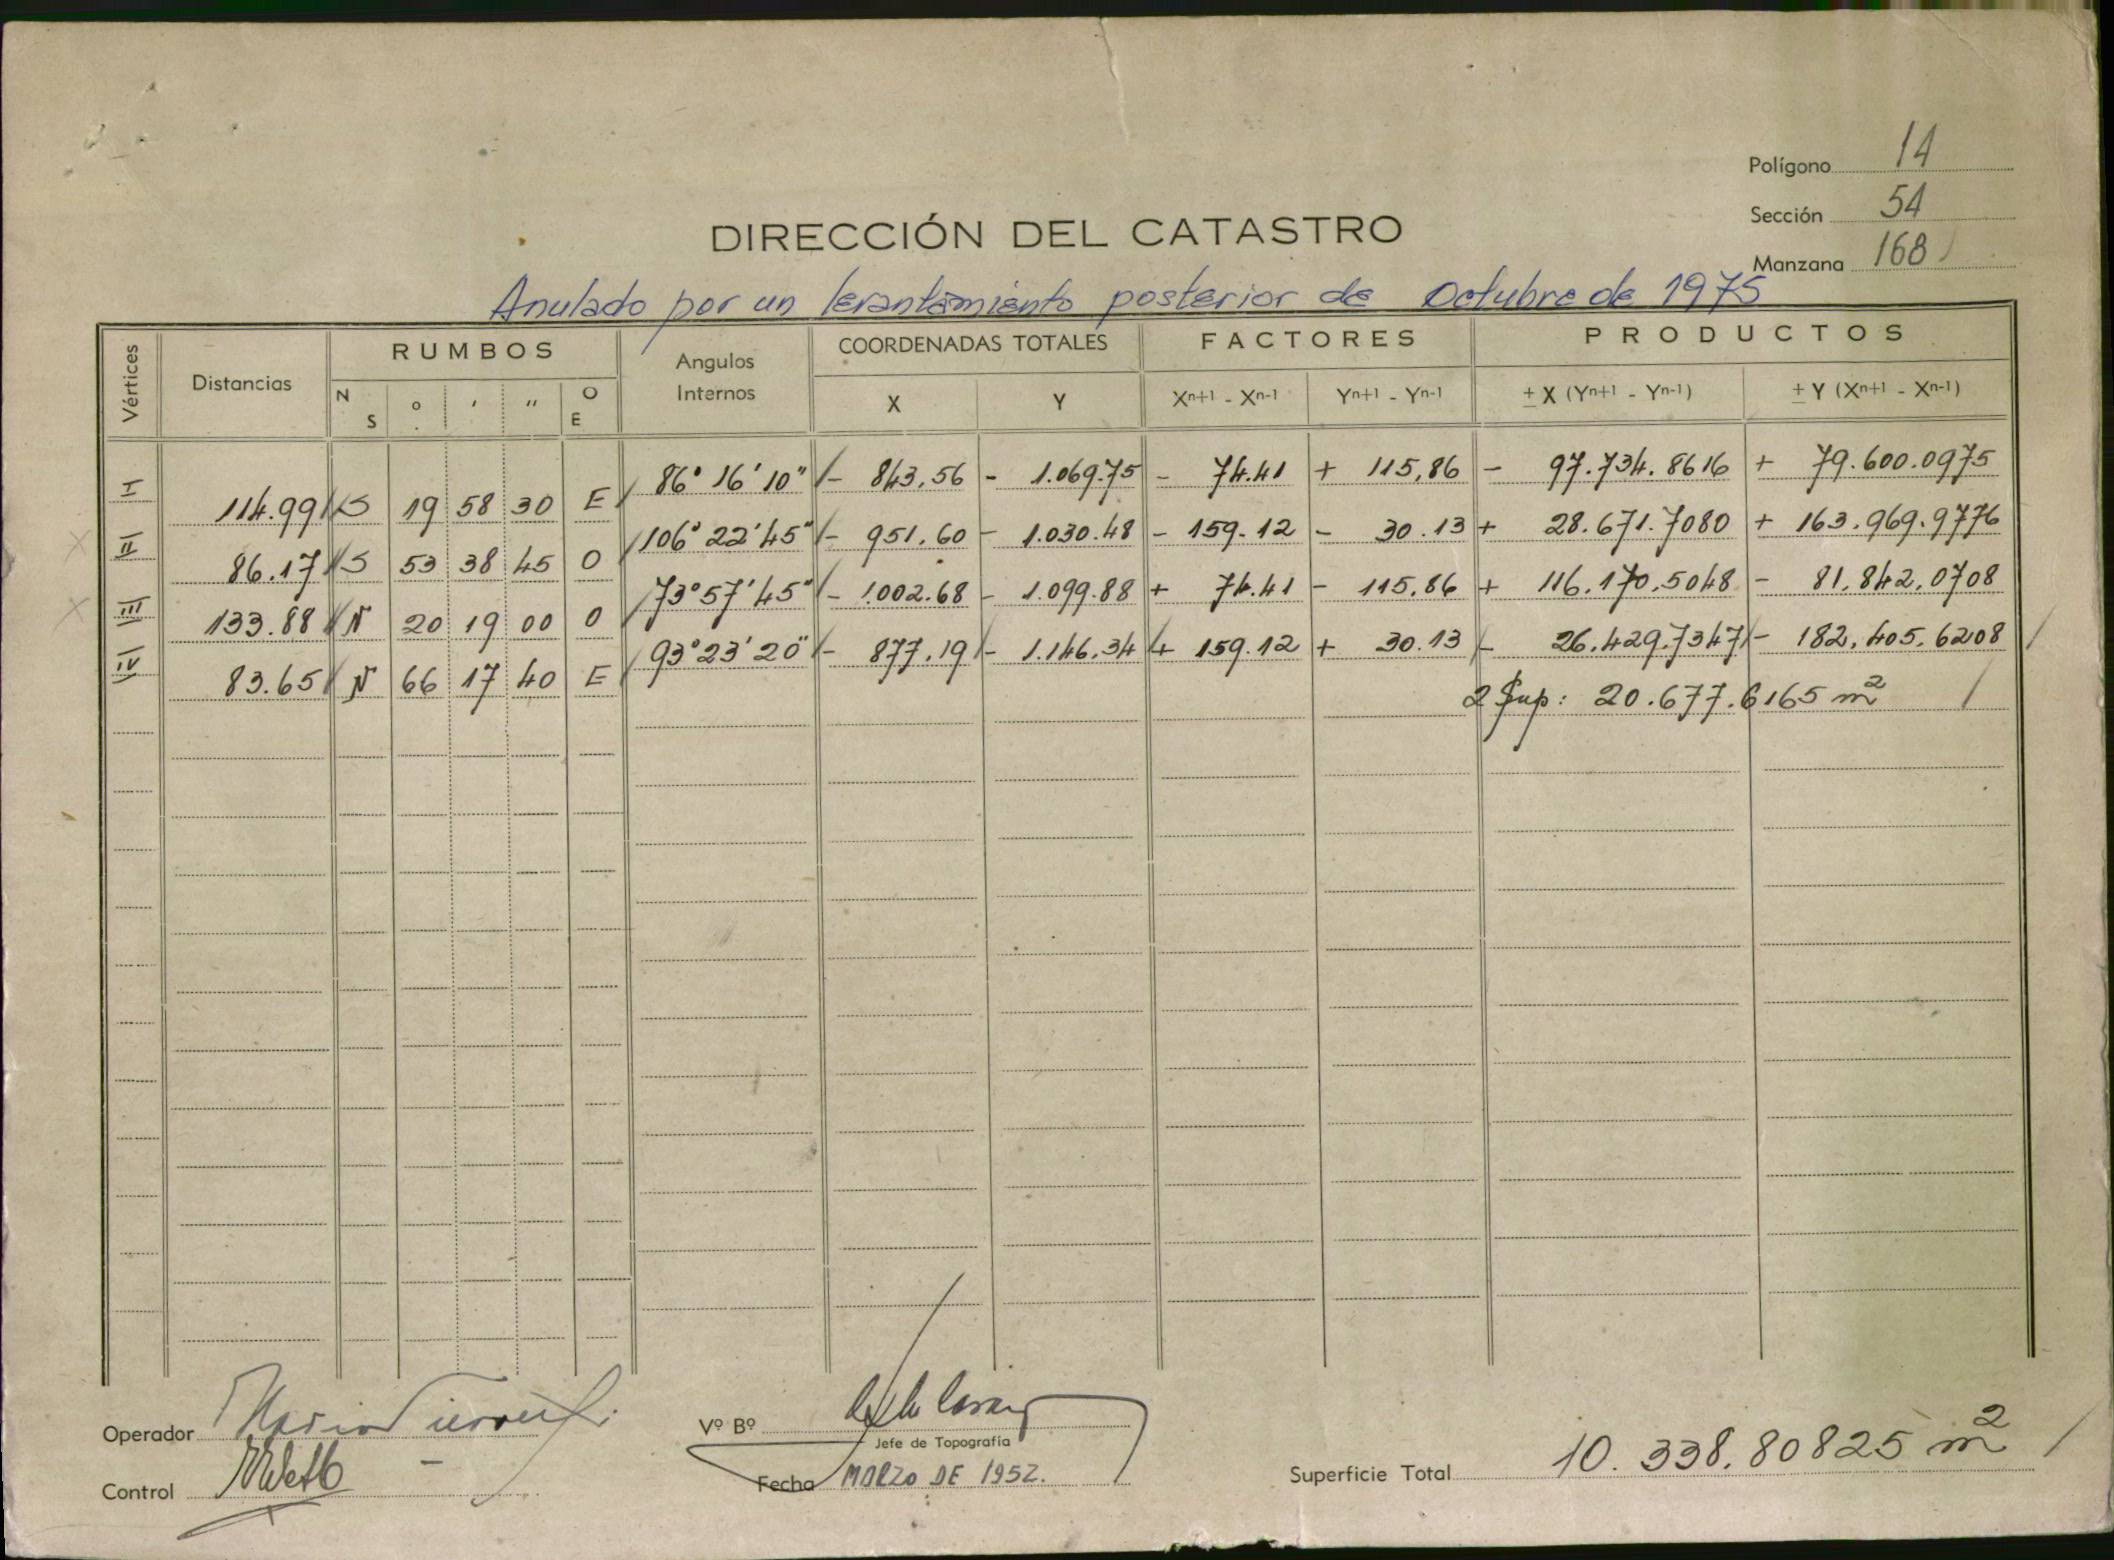 Polígono 14
Sección 54
Manzana 168
DIRECCIÓN DEL CATASTRO
Anulado por un levantamiento posterior de Octubre de 1975
Vértices Distancias RUMBOS Angulos Internos COORDENADAS TOTALES FACTORES PRODUCTOS
N S ° ' " O E X Y Xn+1 - Xn-1 Yn+1 - Yn-1 ± X (Yn+1 - Yn-1) ± Y (Xn+1 - Xn-1)
I 114.99 S 19 58 30 E 86° 16' 10" - 843,56 - 1.069.75 - 74.41 + 115,86 - 97.734.8616 + 79.600.0975
II 86.17 S 53 38 45 O 106° 22' 45" - 951.60 - 1.030.48 - 159.12 - 30.13 + 28.671.7080 + 163.969.9776
III 133.88 N 20 19 00 O 73° 57' 45" - 1.002.68 - 1.099.88 + 74.41 - 115.86 + 116.170.5048 - 81.842,0708
IV 83.65 N 66 17 40 E 93° 23' 20" - 877.19 - 1.146.34 + 159.12 + 30.13 - 26.429.7347 - 182.405.6208
2 Sup: 20.677.6165 m²
Operador
Vº Bº
Jefe de Topografía
Control
Fecha MARZO DE 1952.
Superficie Total 10.338.80825 m²